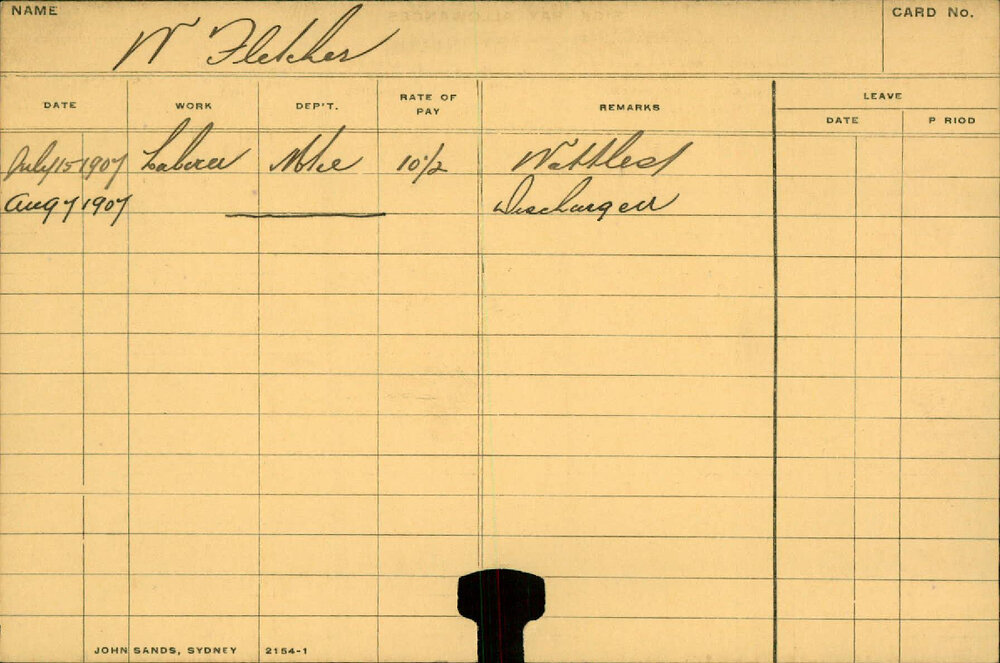 NAME
W Fletcher
CARD No.
DATE WORK DEP'T. RATE OF PAY REMARKS LEAVE
DATE P RIOD
July 15 1907 Laborer 10/2
Aug 7 1907 Discharged
JOHN SANDS, SYDNEY 2154-1